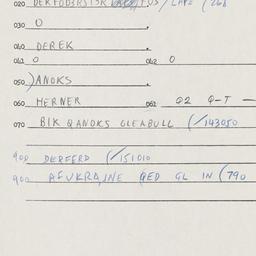 020
030 0
040 DEREK
041 0 042 0
050 ANOKS
060 HERNER 061 02 Q-T —
070 BIK QANOKS GLEABULL (/143050
900 DEREERD (/151010
900 AFUKRAINE RED GL IN (790